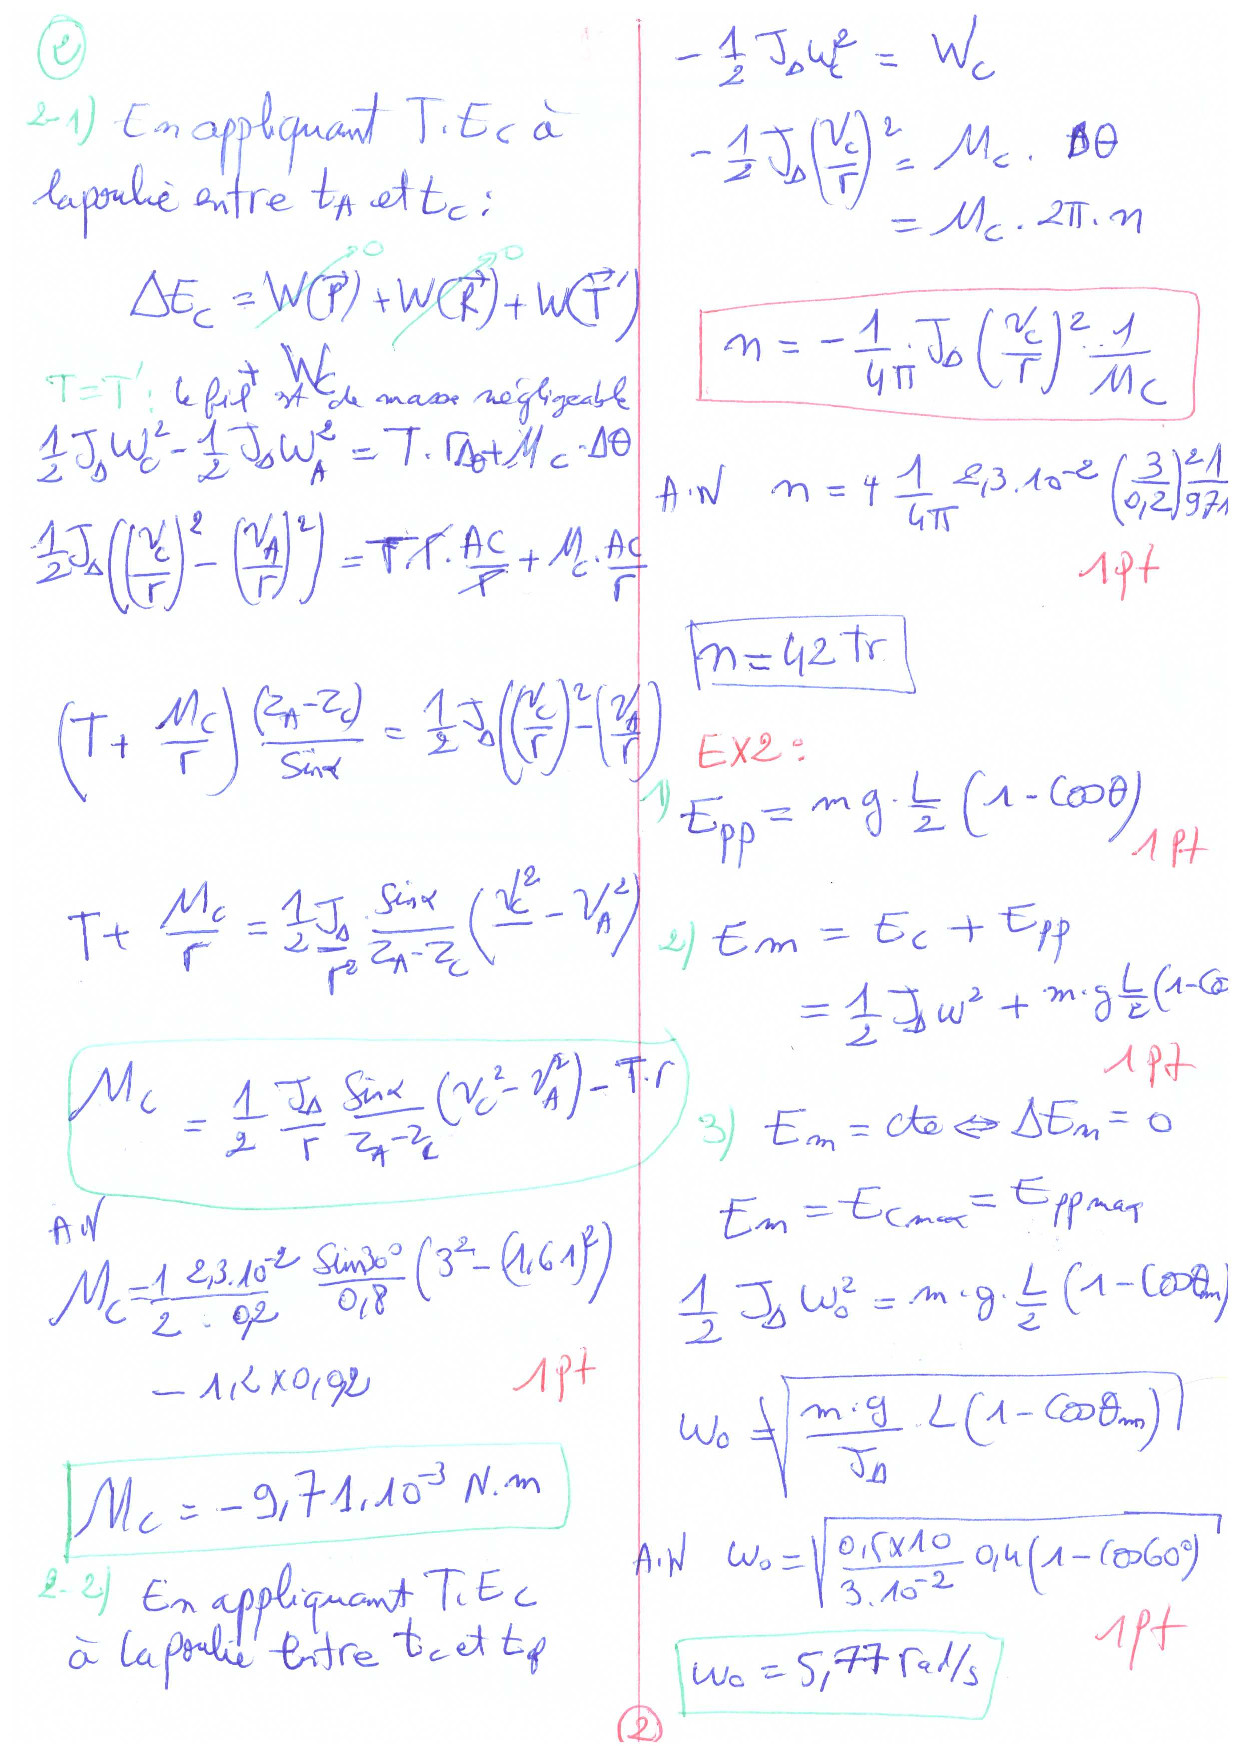 2
2-1) En appliquant T.Ec à
la poulie entre tA et tC :
ΔEc = W(P⃗)→0 + W(R⃗)→0 + W(T⃗')
+ Wc
T = T' : le fil est de masse négligeable
1/2 JΔ ωC² - 1/2 JΔ ωA² = T.rΔθ + Mc.Δθ
1/2 JΔ((vC/r)² - (vA/r)²) = T.r.AC/r + Mc.AC/r
(T + Mc/r) (zA - zC)/sinα = 1/2 JΔ((vC/r)² - (vA/r)²)
T + Mc/r = 1/2 JΔ/r² sinα/(zA - zC) (vC² - vA²)
Mc = 1/2 JΔ/r sinα/(zA - zC) (vC² - vA²) - T.r
A.N
Mc = 1/2 . 2,3.10⁻²/0,2 sin30°/0,8 (3² - (1,61)²)
- 1,2 x 0,92
1pt
Mc = - 9,71.10⁻³ N.m
2-2) En appliquant T.Ec
à la poulie entre tc et tf
- 1/2 JΔ ωC² = Wc
- 1/2 JΔ (vC/r)² = Mc . Δθ
= Mc . 2π.n
n = - 1/4π . JΔ (vC/r)² . 1/Mc
A.N n = + 1/4π 2,3.10⁻² (3/0,2)² 1/971
1pt
n = 42 tr
EX2 :
1) Epp = mg.L/2 (1 - cosθ)
1pt
2) Em = Ec + Epp
= 1/2 JΔ ω² + m.g L/2 (1 - co
1pt
3) Em = cte ⇔ ΔEm = 0
Em = Ecmax = Eppmax
1/2 JΔ ω0² = m.g.L/2 (1 - cosθm)
ω0 = √(m.g/JΔ . L(1 - cosθm))
A.N ω0 = √(0,5x10/3.10⁻² 0,4(1 - cos60°))
1pt
ω0 = 5,77 rad/s
2